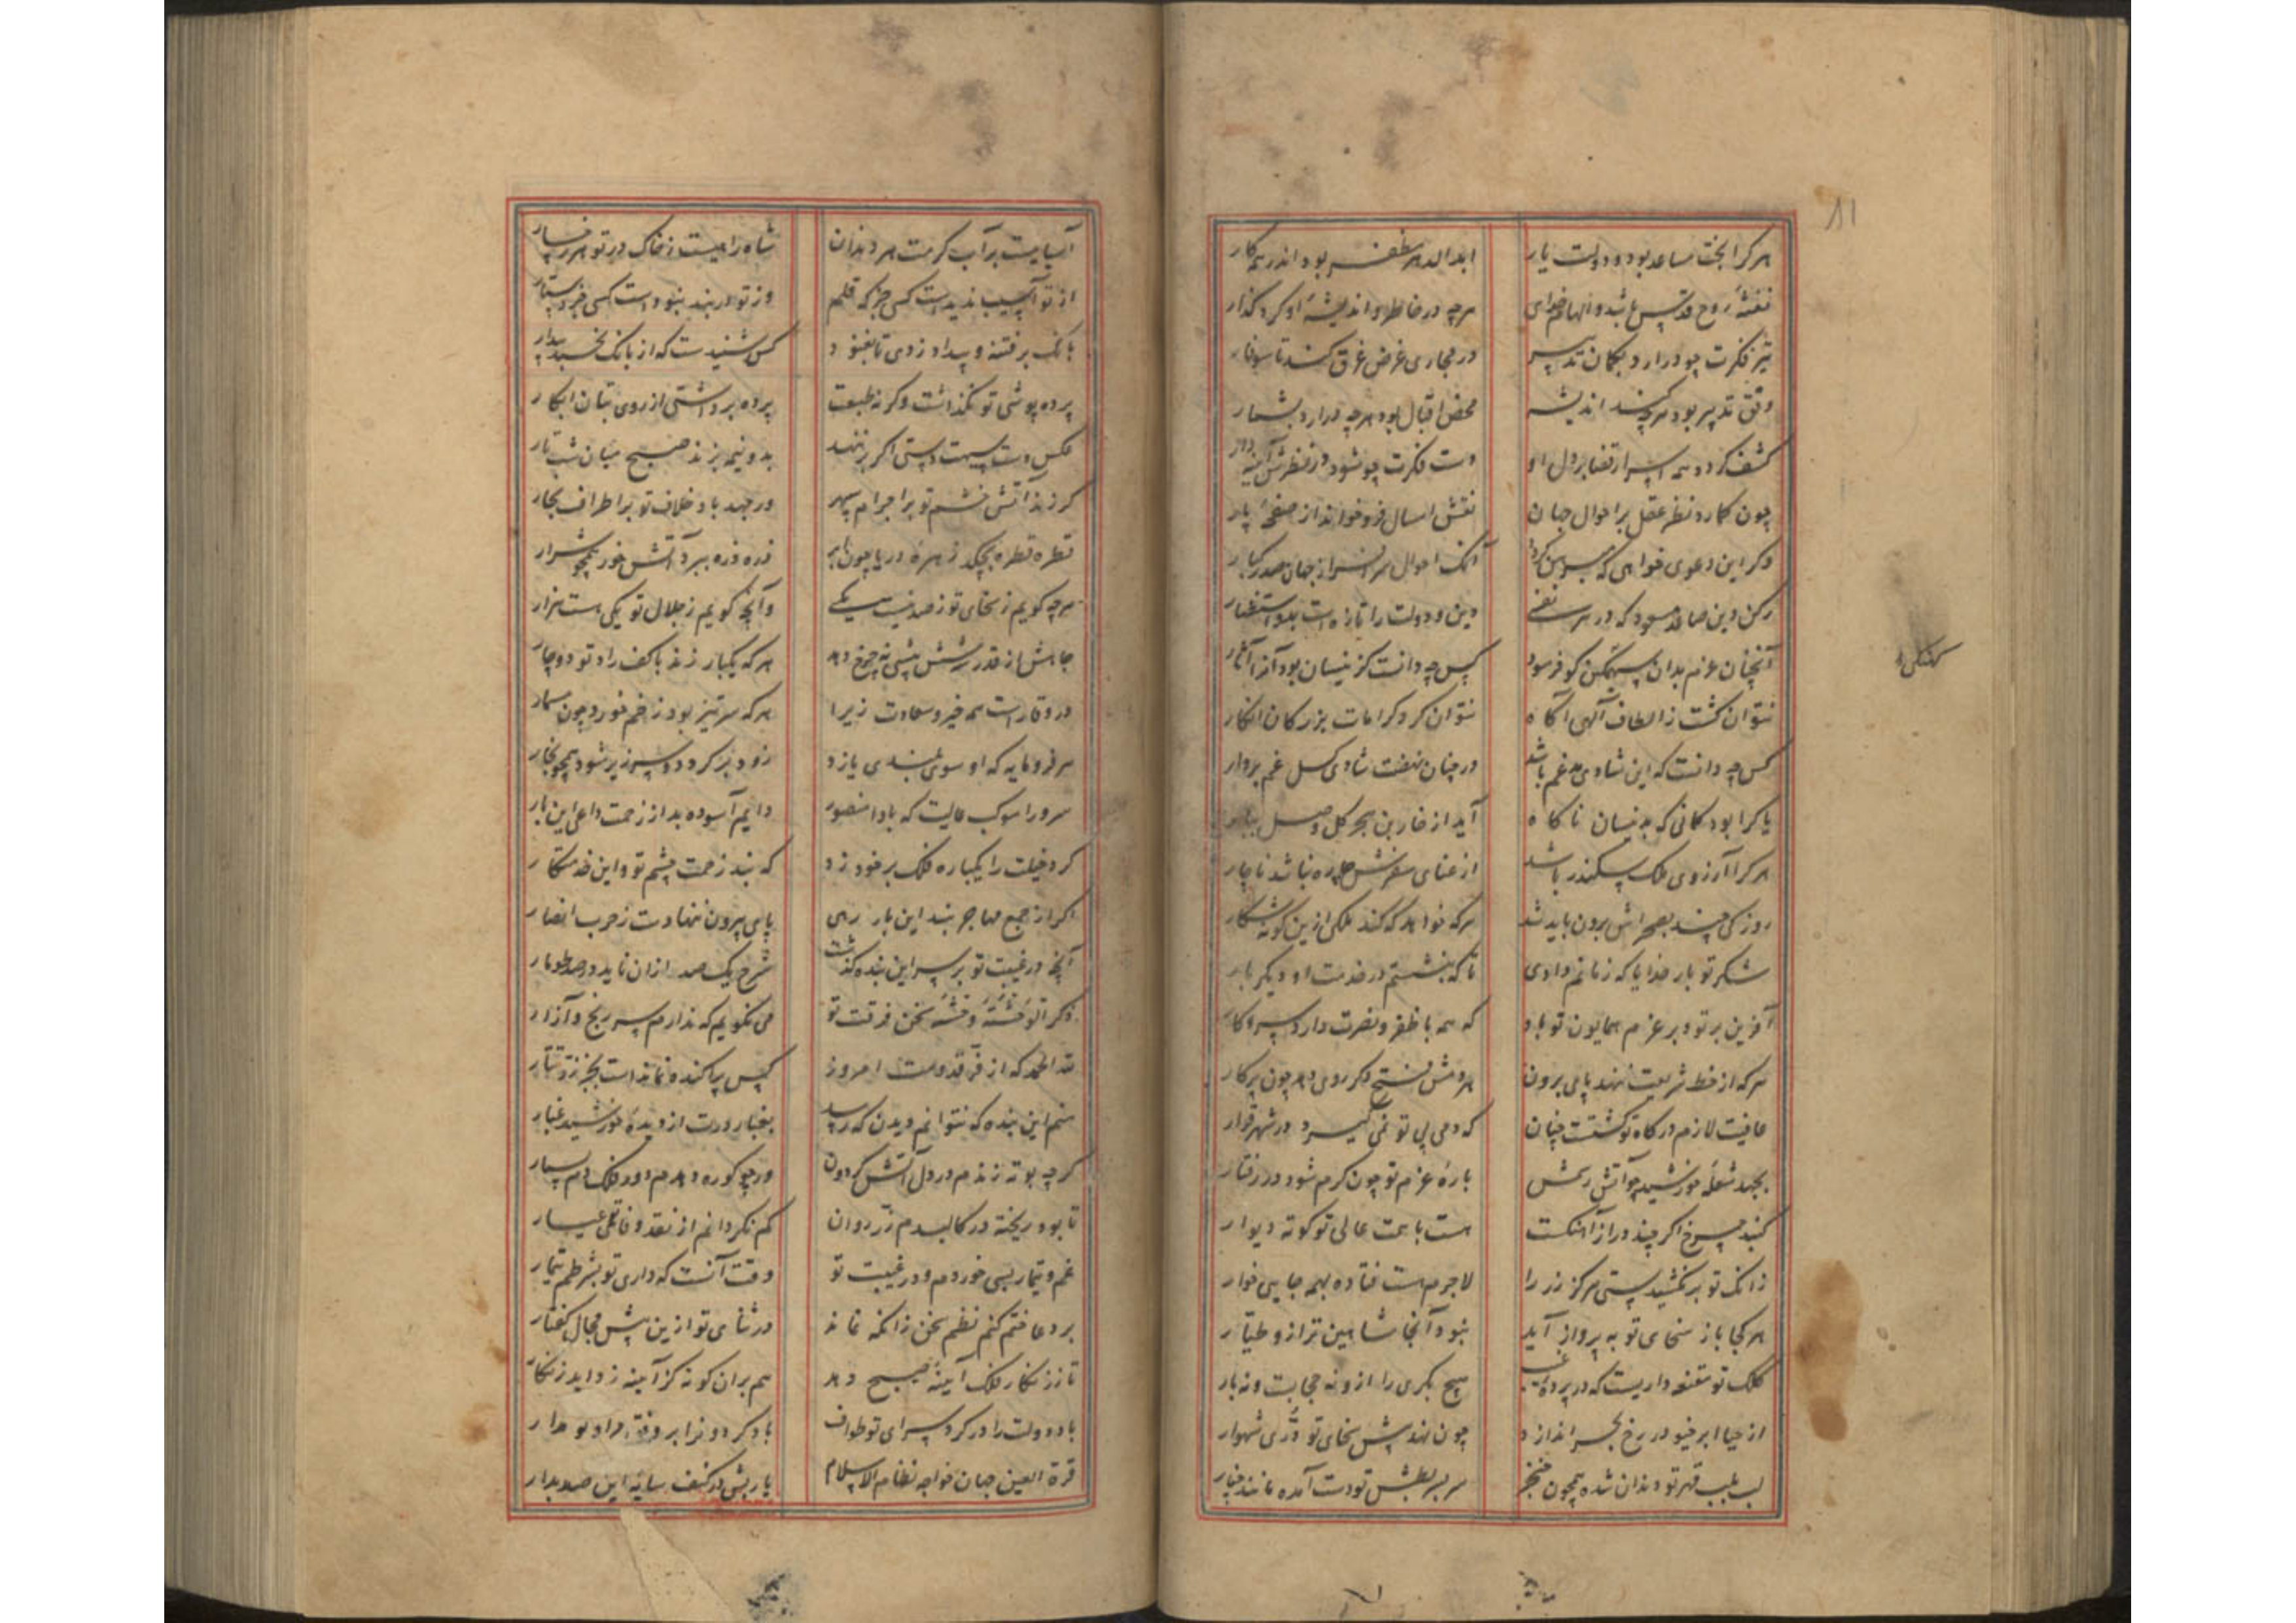 ۸۱
هر کرا بخت مساعد بود و دولت یار ابدالدهر مظفر بود اندر همه کار
نفثهٔ روح قدس باشد و الهام خدای هرچه در خاطر و اندیشهٔ او کرد گذار
تیر فکرت چو درآرد بکمان تدبیر در مجاری غرض غرق کند تا سوفار
وفق تدبیر بود هرچه کند اندیشه محض اقبال بود هرچه درآرد بشمار
کشف گردد همه اسرار قضا بر دل او دست فکرت چو شود در نظرش آینه دار
چون گمارد نظر عقل بر احوال جهان نقش امسال فرو خواند از صفحهٔ پار
وگر این دعوی خواهی که مبرهن گردد آنک احوال سرافراز جهان صدر کبار
رکن دین صاعد مسعود که در هر نفسی دین و دولت را تازه است بدو استظهار
آنچنان عزم بدان سهمگنی کو فرمود کس چه دانست کزینسان بود آنرا آثار
نتوان گشت ز الطاف الهی آگاه نتوان کرد کرامات بزرگان انکار
کس چه دانست که این شادی در غم باشد در چنان نهضت شادی گسل غم بردار
یا کرا بود گمانی که بدینسان ناگاه آید از خار بن هجر گل وصل ببار
هر کرا آرزوی ملک سکندر باشد از عنای سفرش چاره نباشد ناچار
روزکی چند بصحراش برون باید شد هرکه خواهد که کند ملکی ازین گونه شکار
شکر تو بار خدایا که زمانم دادی تا که بنشستم در خدمت او دیگر بار
آفرین بر تو و بر عزم همایون تو باد که همه با ظفر و نصرت دارد سر و کار
هرکه از خط شریعت بنهد پای برون هر دمش فتح دگر روی دهد چون پرگار
عافیت لازم درگاه تو گشتست چنان که دمی بی تو نمی گیرد در شهر قرار
بجهد شعلهٔ خورشید چو آتش ز سمش بارهٔ عزم تو چون گرم شود در رفتار
گنبد چرخ اگر چند دراز آهنگست هست با همت عالی تو کوته دیوار
زانک تو بر نکشیدستی هرگز زر را لاجرم هست فتاده بهمه جایی خوار
هر کجا باز سخای تو به پرواز آید نبود آنجا شاهین ترازو طیار
کلک تو مقنعه داریست که در پردهٔ غیب هیچ بکری را ازو نه حجابست و نه بار
از حیا ابر خوی در رخ بحر اندازد چون نهد پیش سخای تو دری شهوار
لب قهر تو دندان شده همچون خنجر سر بسر بطش تو دست آمده مانند چنار
آسیابیست بر آب کرمت هر دندان شاه را هست ز خاک در تو هر رخسار
از تو آسیب ندیدست کسی جز که قلم وز تو در بند نبودست کسی جز دستار
بانگ بر فتنه و بیداد زدی تا بغنود کس شنیدست که از بانگ نخسبد بیدار
پرده پوشی تو نگذاشت وگرنه طبعت پرده برداشتی از روی بتان ابکار
عکس دستت بدو نیمه زند صبح میان شب تار
گر زند آتش خشم تو بر اجرام سپهر ور جهد باد خلاف تو بر اطراف بحار
قطره قطره بچکد زهرهٔ دریا چون ابر ذره ذره ببرد آتش خور همچو شرار
هرچه گویم ز سخای تو ز صد نیست یکی وآنچ گویم ز جلال تو یکی هست هزار
هرکه یکبار زند با کف راد تو دوچار
در وقارست همه خیر و سعادت زیرا هرکه سرتیز بود زخم خورد چون مسمار
هر فرومایه که او سوی بلندی یازد زود بر گردد و سر زیر شود همچو بخار
سرورا موکب عالیت که بادا منصور دایم آسوده بد از زحمت داعی این بار
کرد خیلت را یکباره فلک برخود زد که نبد زحمت چشم تو و این خدمتکار
اگر از جمع مهاجر نبد این بار رهی پای بیرون ننهادست ز حزب انصار
آنچ در غیبت تو بر سر این بنده گذشت شرح یک صد ازان ناید در صد طومار
می نگویم که ندارم سر رنج و آزار
لله الحمد که از فر قدومت امروز کس پراکنده نماندست بجز زر نثار
منم این بنده که نتوانم دیدن که رسد بغبار درت از دیدهٔ خورشید غبار
گر چو بوته زندم در دل آتش گردون ور چو کوره دهدم دود فلک دم بسیار
تا بود ریخته در کالبدم زر روان کم نگردانم از نقد وفا عیار
غم و تیمار بسی خوردم در غیبت تو وقت آنست که داری تو بشرطم تیمار
بر دعا ختم کنم نظم سخن زانکه نماند در ثنای تو ازین بیش مجال گفتار
تا ز زنگار فلک آینهٔ صبح دهد هم بران گونه کز آینه زداید زنگار
باد دولت را در گرد سرای تو طواف باد گردون را بر وفق مراد تو مدار
قرة العین جهان خواجه نظام الاسلام یارب در کنف سایهٔ این صدر بدار